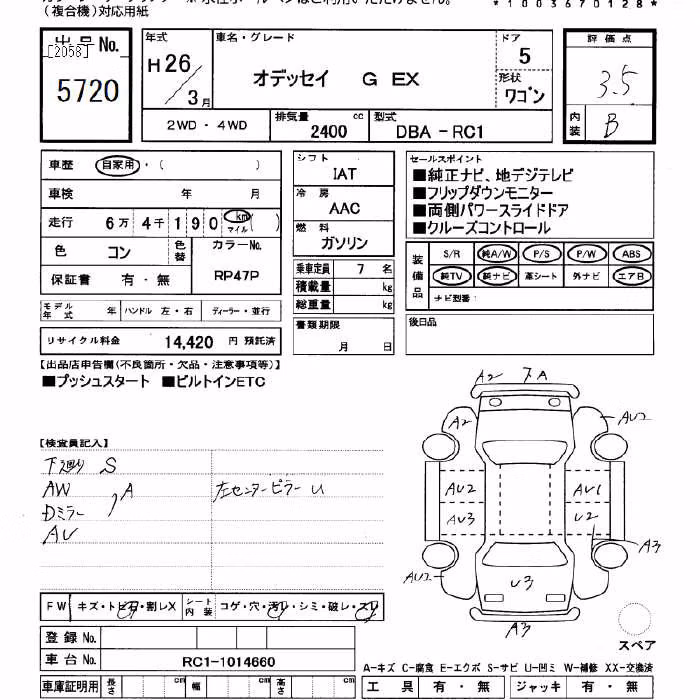 (複合機)対応用紙
*1003670128*
出品 No.
[2058]
5720
年式
H26/3月
車名・グレード
オデッセイ G EX
ドア
5
形状
ワゴン
評価点
3.5
内装
B
2WD・4WD
排気量
2400 cc
型式
DBA-RC1
車歴 自家用・( )
車検 年 月
走行 6万4千190 km マイル ( )
色 コン
色替
カラーNo.
RP47P
保証書 有・無
シフト
IAT
冷房
AAC
燃料
ガソリン
セールスポイント
■純正ナビ、地デジテレビ
■フリップダウンモニター
■両側パワースライドドア
■クルーズコントロール
装備品
S/R 純A/W P/S P/W ABS
純TV 純ナビ 革シート 外ナビ エアB
ナビ型番:
乗車定員 7 名
積載量 kg
総重量 kg
モデル年式 年 ハンドル 左・右 ディーラー・並行
書類期限
月 日
後日品
リサイクル料金 14,420 円 預託済
【出品店申告欄(不良箇所・欠品・注意事項等)】
■プッシュスタート ■ビルトインETC
【検査員記入】
下廻り S
AW
Dミラー
A
AU
左センターピラー U
A2 下A
A2
AU2
AU2
AU1
AU3
U2
A3
AU2
U3
A3
スペア
FW キズ・トビ石・割レX
シート内装 コゲ・穴・汚レ・シミ・破レ・スレ
登録 No.
車台 No. RC1-1014660
車庫証明用 長さ cm 幅 cm 高さ cm
A-キズ C-腐食 E-エクボ S-サビ U-凹ミ W-補修 XX-交換済
工具 有・無 ジャッキ 有・無